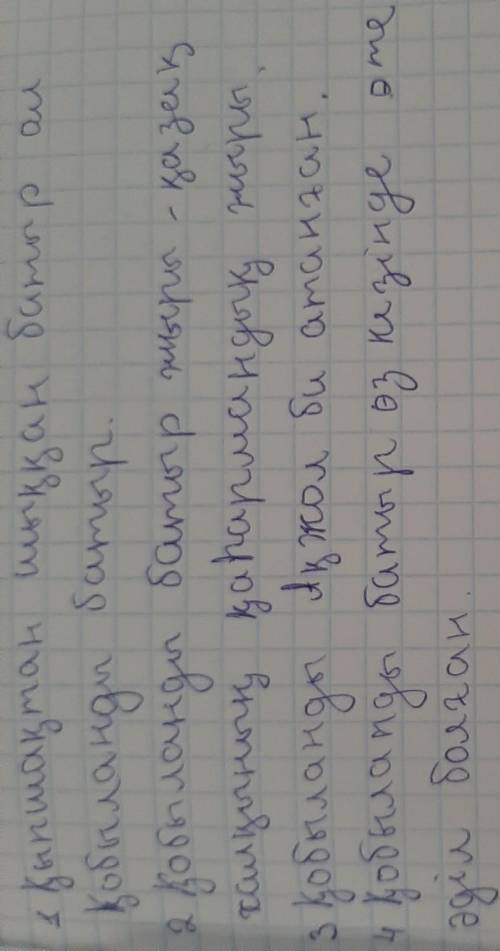 1 Қыпшақтан шыққан батыр ол
Қобыланды батыр.
2 Қобыланды батыр жыры - қазақ
халқының қаһармандық жыры.
3 Қобыланды Ақжол би атанған.
4 Қобыланды батыр өз кезінде өте
әділ болған.